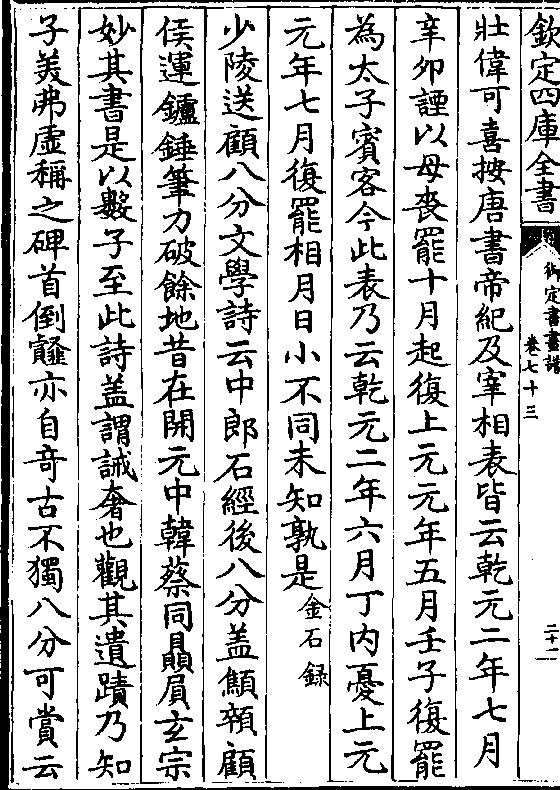 欽定四庫全書
御定書畫譜
卷七十三
二十二
壯偉可喜按唐書帝紀及宰相表皆云乾元二年七月
辛卯諲以母喪罷十月起復上元元年五月壬子復罷
為太子賓客今此表乃云乾元二年六月丁内憂上元
元年七月復罷相月日小不同未知孰是金石録
少陵送顧八分文學詩云中郎石經後八分盖顦顇顧
侯運鑪錘筆力破餘地昔在開元中韓蔡同贔屓玄宗
妙其書是以數子至此詩盖謂誡奢也觀其遺蹟乃知
子美弗虚稱之碑首倒薤亦自竒古不獨八分可賞云